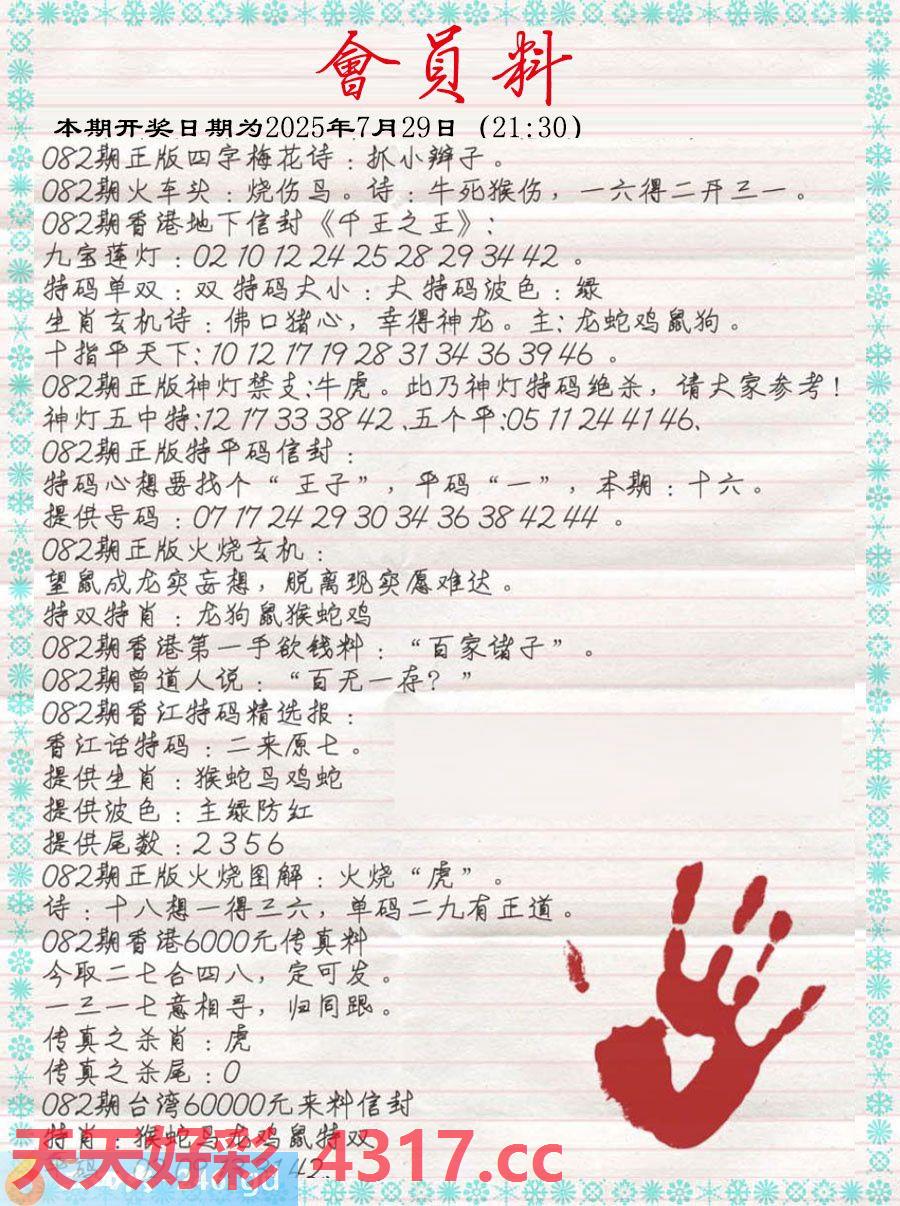 會員料
本期开奖日期为2025年7月29日（21:30）
082期正版四字梅花诗：抓小辫子。
082期火车头：烧伤鸟。诗：牛死猴伤，一六得二开三一。
082期香港地下信封《千王之王》：
九宝莲灯：02 10 12 24 25 28 29 34 42 。
特码单双：双 特码大小：大 特码波色：绿
生肖玄机诗：佛口猪心，幸得神龙。主：龙蛇鸡鼠狗。
十指平天下：10 12 17 19 28 31 34 36 39 46 。
082期正版神灯禁支：牛虎。此乃神灯特码绝杀，请大家参考！
神灯五中特：12 17 33 38 42 、五个平：05 11 24 41 46、
082期正版特平码信封：
特码心想要找个“王子”，平码“一”，本期：十六。
提供号码：07 17 24 29 30 34 36 38 42 44 。
082期正版火烧玄机：
望鼠成龙实妄想，脱离现实愿难达。
特双特肖：龙狗鼠猴蛇鸡
082期香港第一手欲钱料：“百家诸子”。
082期曾道人说：“百无一存？”
082期香江特码精选报：
香江话特码：二来原七。
提供生肖：猴蛇马鸡蛇
提供波色：主绿防红
提供尾数：2 3 5 6
082期正版火烧图解：火烧“虎”。
诗：十八想一得三六，单码二九有正道。
082期香港6000元传真料
今取二七合四八，定可发。
一三一七意相寻，归同跟。
传真之杀肖：虎
传真之杀尾：0
082期台湾60000元来料信封
特肖：猴蛇马龙鸡鼠特双
天天好彩 4317.cc